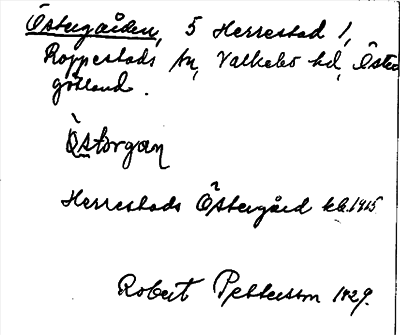 Östergården, 5 Herrestad 1,
Roppestads sn, Valkebo hd, Öster
götland.
Östərgan
Herrestads Östergård kb. 1915
Robert Pettersson 1929.